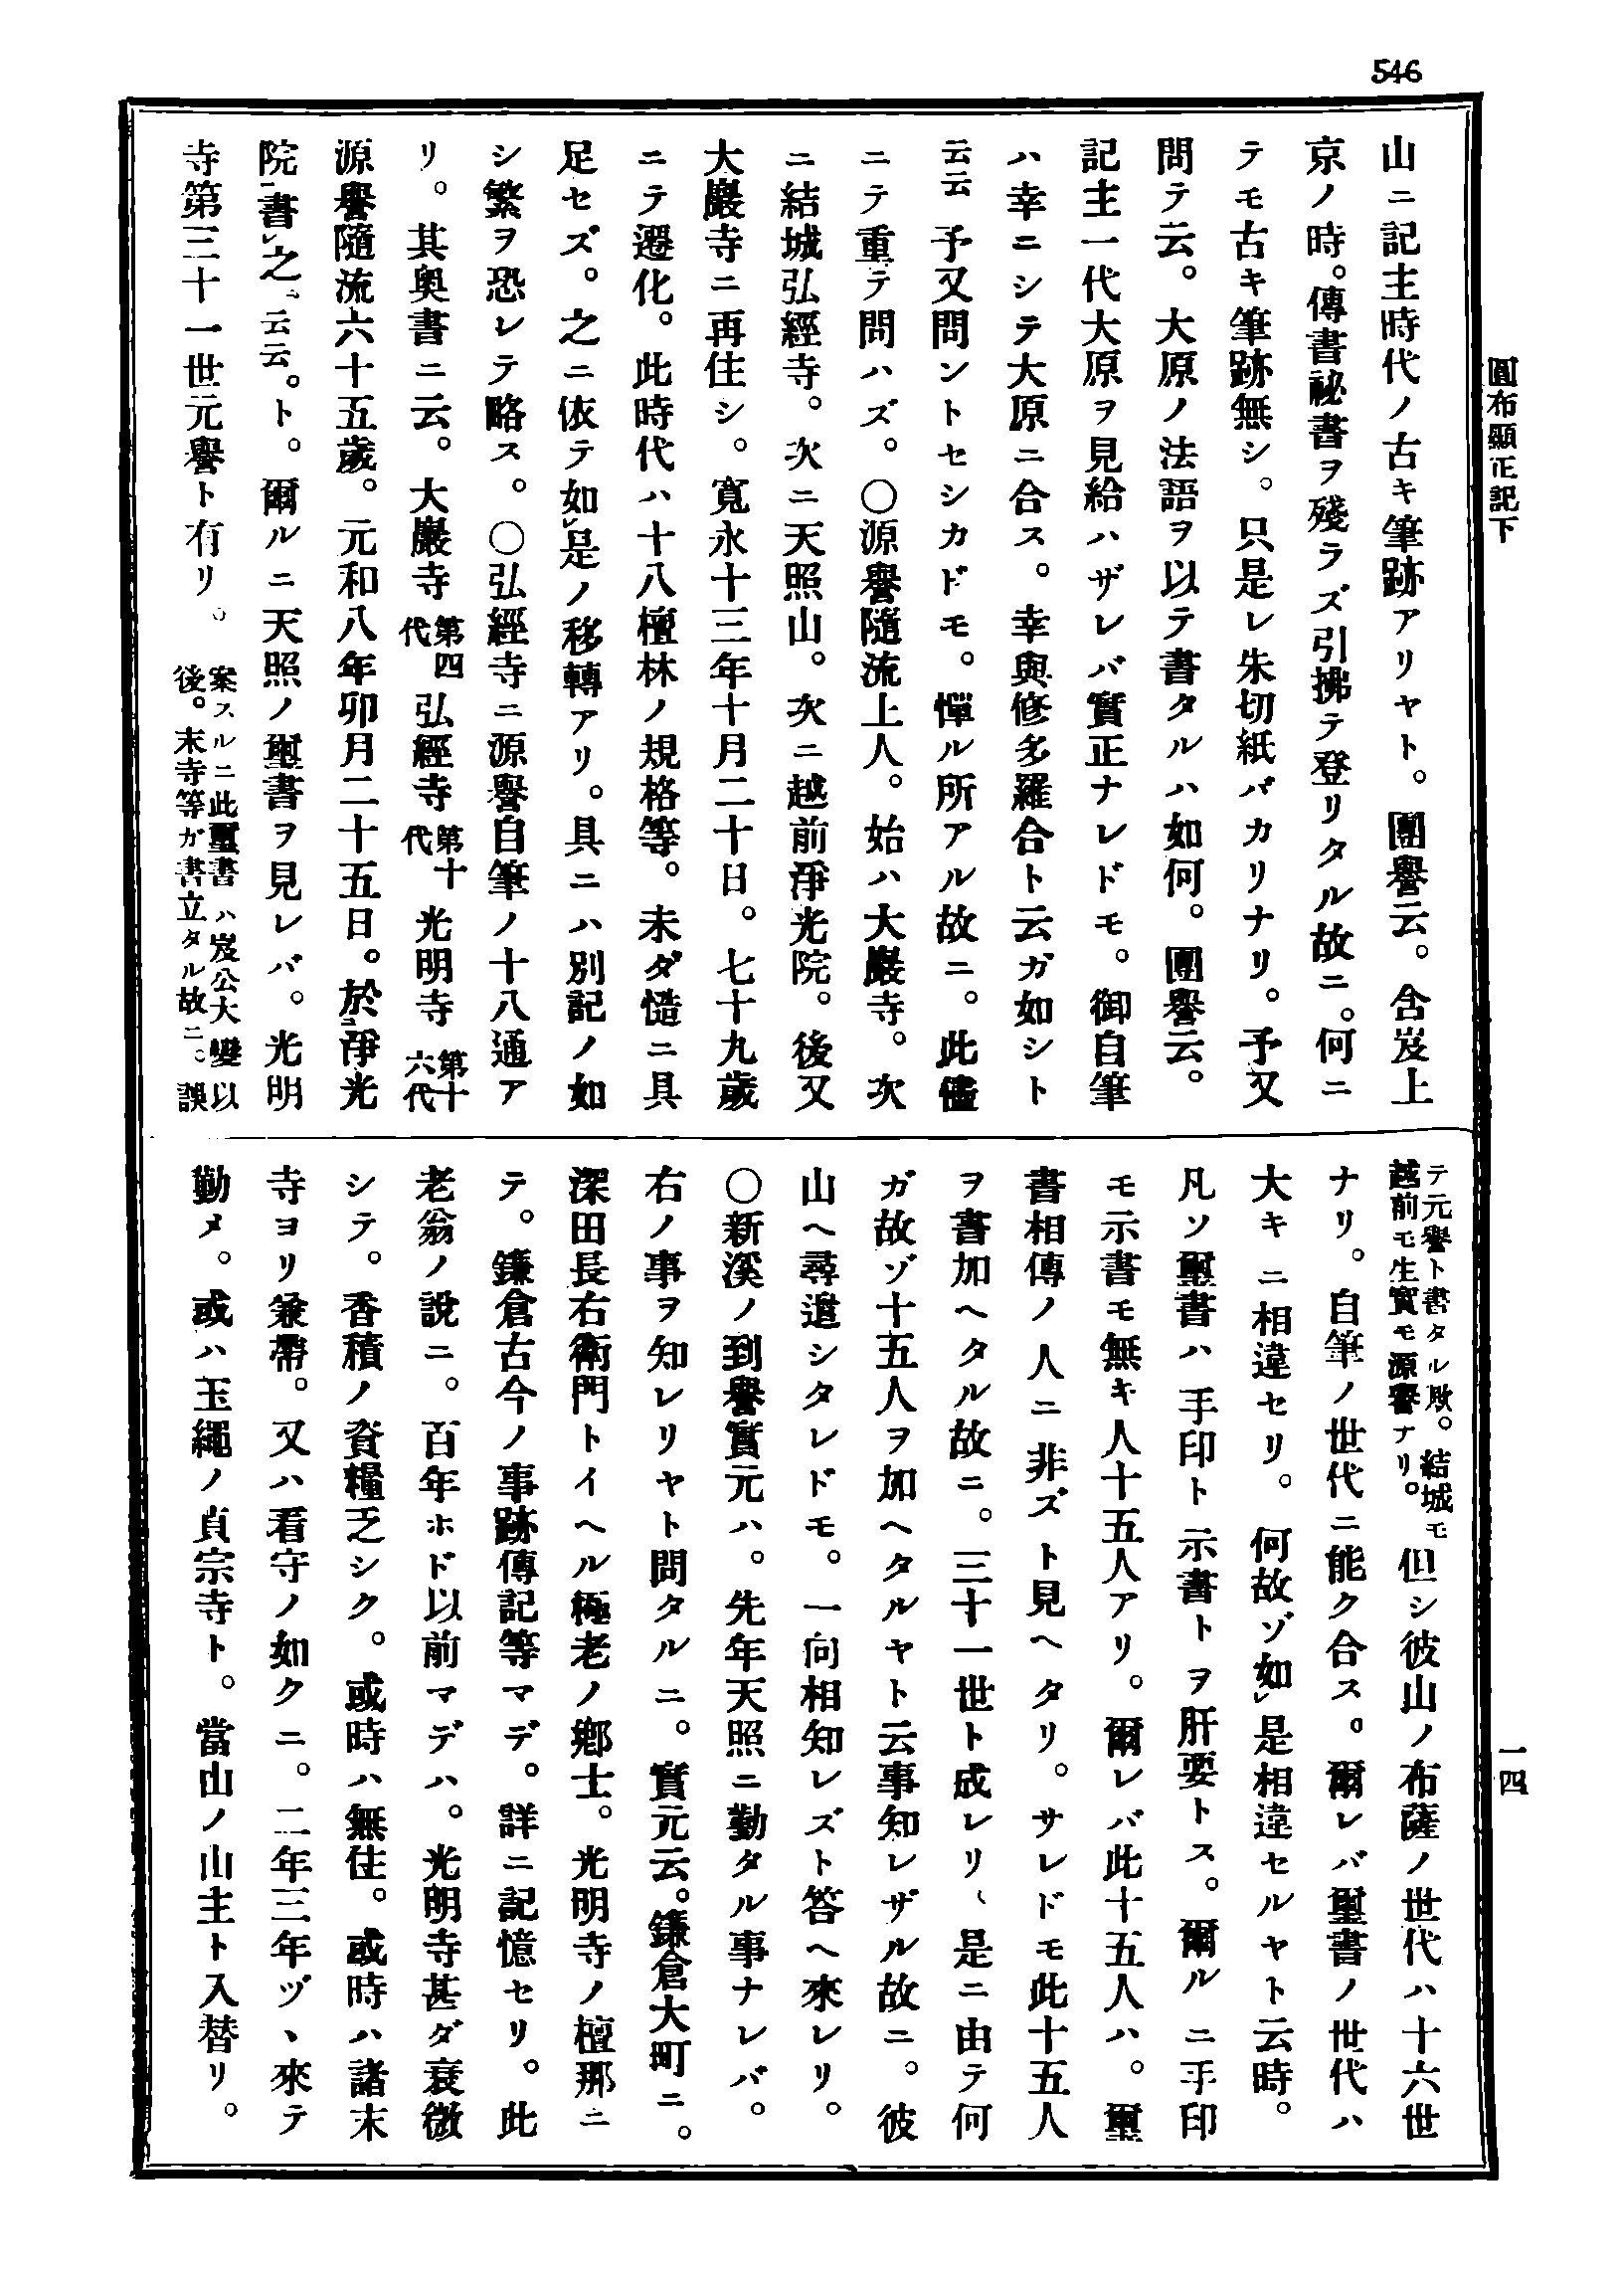 546
圓布顯正記下
一四
山ニ記主時代ノ古キ筆跡アリヤト。團譽云。含岌上
京ノ時。傳書祕書ヲ殘ラズ引拂テ登リタル故ニ。何ニ
テモ古キ筆跡無シ。只是レ朱切紙バカリナリ。予又
問テ云。大原ノ法語ヲ以テ書タルハ如何。團譽云。
記主一代大原ヲ見給ハザレバ實正ナレドモ。御自筆
ハ幸ニシテ大原ニ合ス。幸與修多羅合ト云ガ如シト
云云 予又問ントセシカドモ。憚ル所アル故ニ。此儘
ニテ重テ問ハズ。〇源譽隨流上人。始ハ大巖寺。次
ニ結城弘經寺。次ニ天照山。次ニ越前淨光院。後又
大巖寺ニ再住シ。寬永十三年十月二十日。七十九歲
ニテ遷化。此時代ハ十八檀林ノ規格等。未ダ慥ニ具
足セズ。之ニ依テ如㆑是ノ移轉アリ。具ニハ別記ノ如
シ繁ヲ恐レテ略ス。〇弘經寺ニ源譽自筆ノ十八通ア
リ。其奥書ニ云。大巖寺 第四代 弘經寺 第十代 光明寺 第十六代
源譽隨流六十五歲。元和八年卯月二十五日。於㆓淨光
院㆒書㆑之。云云。ト。爾ルニ天照ノ璽書ヲ見レバ。光明
寺第三十一世元譽ト有リ。 案スルニ此璽書ハ岌公大變以
後。末寺等ガ書立タル故ニ。誤
テ元譽ト書タル歟。結城モ
越前モ生實モ源譽ナリ。 但シ彼山ノ布薩ノ世代ハ十六世
ナリ。自筆ノ世代ニ能ク合ス。爾レバ璽書ノ世代ハ
大キニ相違セリ。何故ゾ如㆑是相違セルヤト云時。
凡ソ璽書ハ手印ト示書トヲ肝要トス。爾ルニ手印
モ示書モ無キ人十五人アリ。爾レバ此十五人ハ。璽
書相傳ノ人ニ非ズト見ヘタリ。サレドモ此十五人
ヲ書加ヘタル故ニ。三十一世ト成レリ、是ニ由テ何
ガ故ゾ十五人ヲ加ヘタルヤト云事知レザル故ニ。彼
山ヘ尋遣シタレドモ。一向相知レズト答ヘ來レリ。
〇新溪ノ到譽實元ハ。先年天照ニ勤タル事ナレバ。
右ノ事ヲ知レリヤト問タルニ。實元云。鎌倉大町ニ。
深田長右衛門トイヘル極老ノ鄕士。光明寺ノ檀那ニ
テ。鎌倉古今ノ事跡傳記等マデ。詳ニ記憶セリ。此
老翁ノ說ニ。百年ホド以前マデハ。光明寺甚ダ衰微
シテ。香積ノ資糧乏シク。或時ハ無住。或時ハ諸末
寺ヨリ兼帶。又ハ看守ノ如クニ。二年三年ヅヽ來テ
勤メ。或ハ玉繩ノ貞宗寺ト。當山ノ山主ト入替リ。